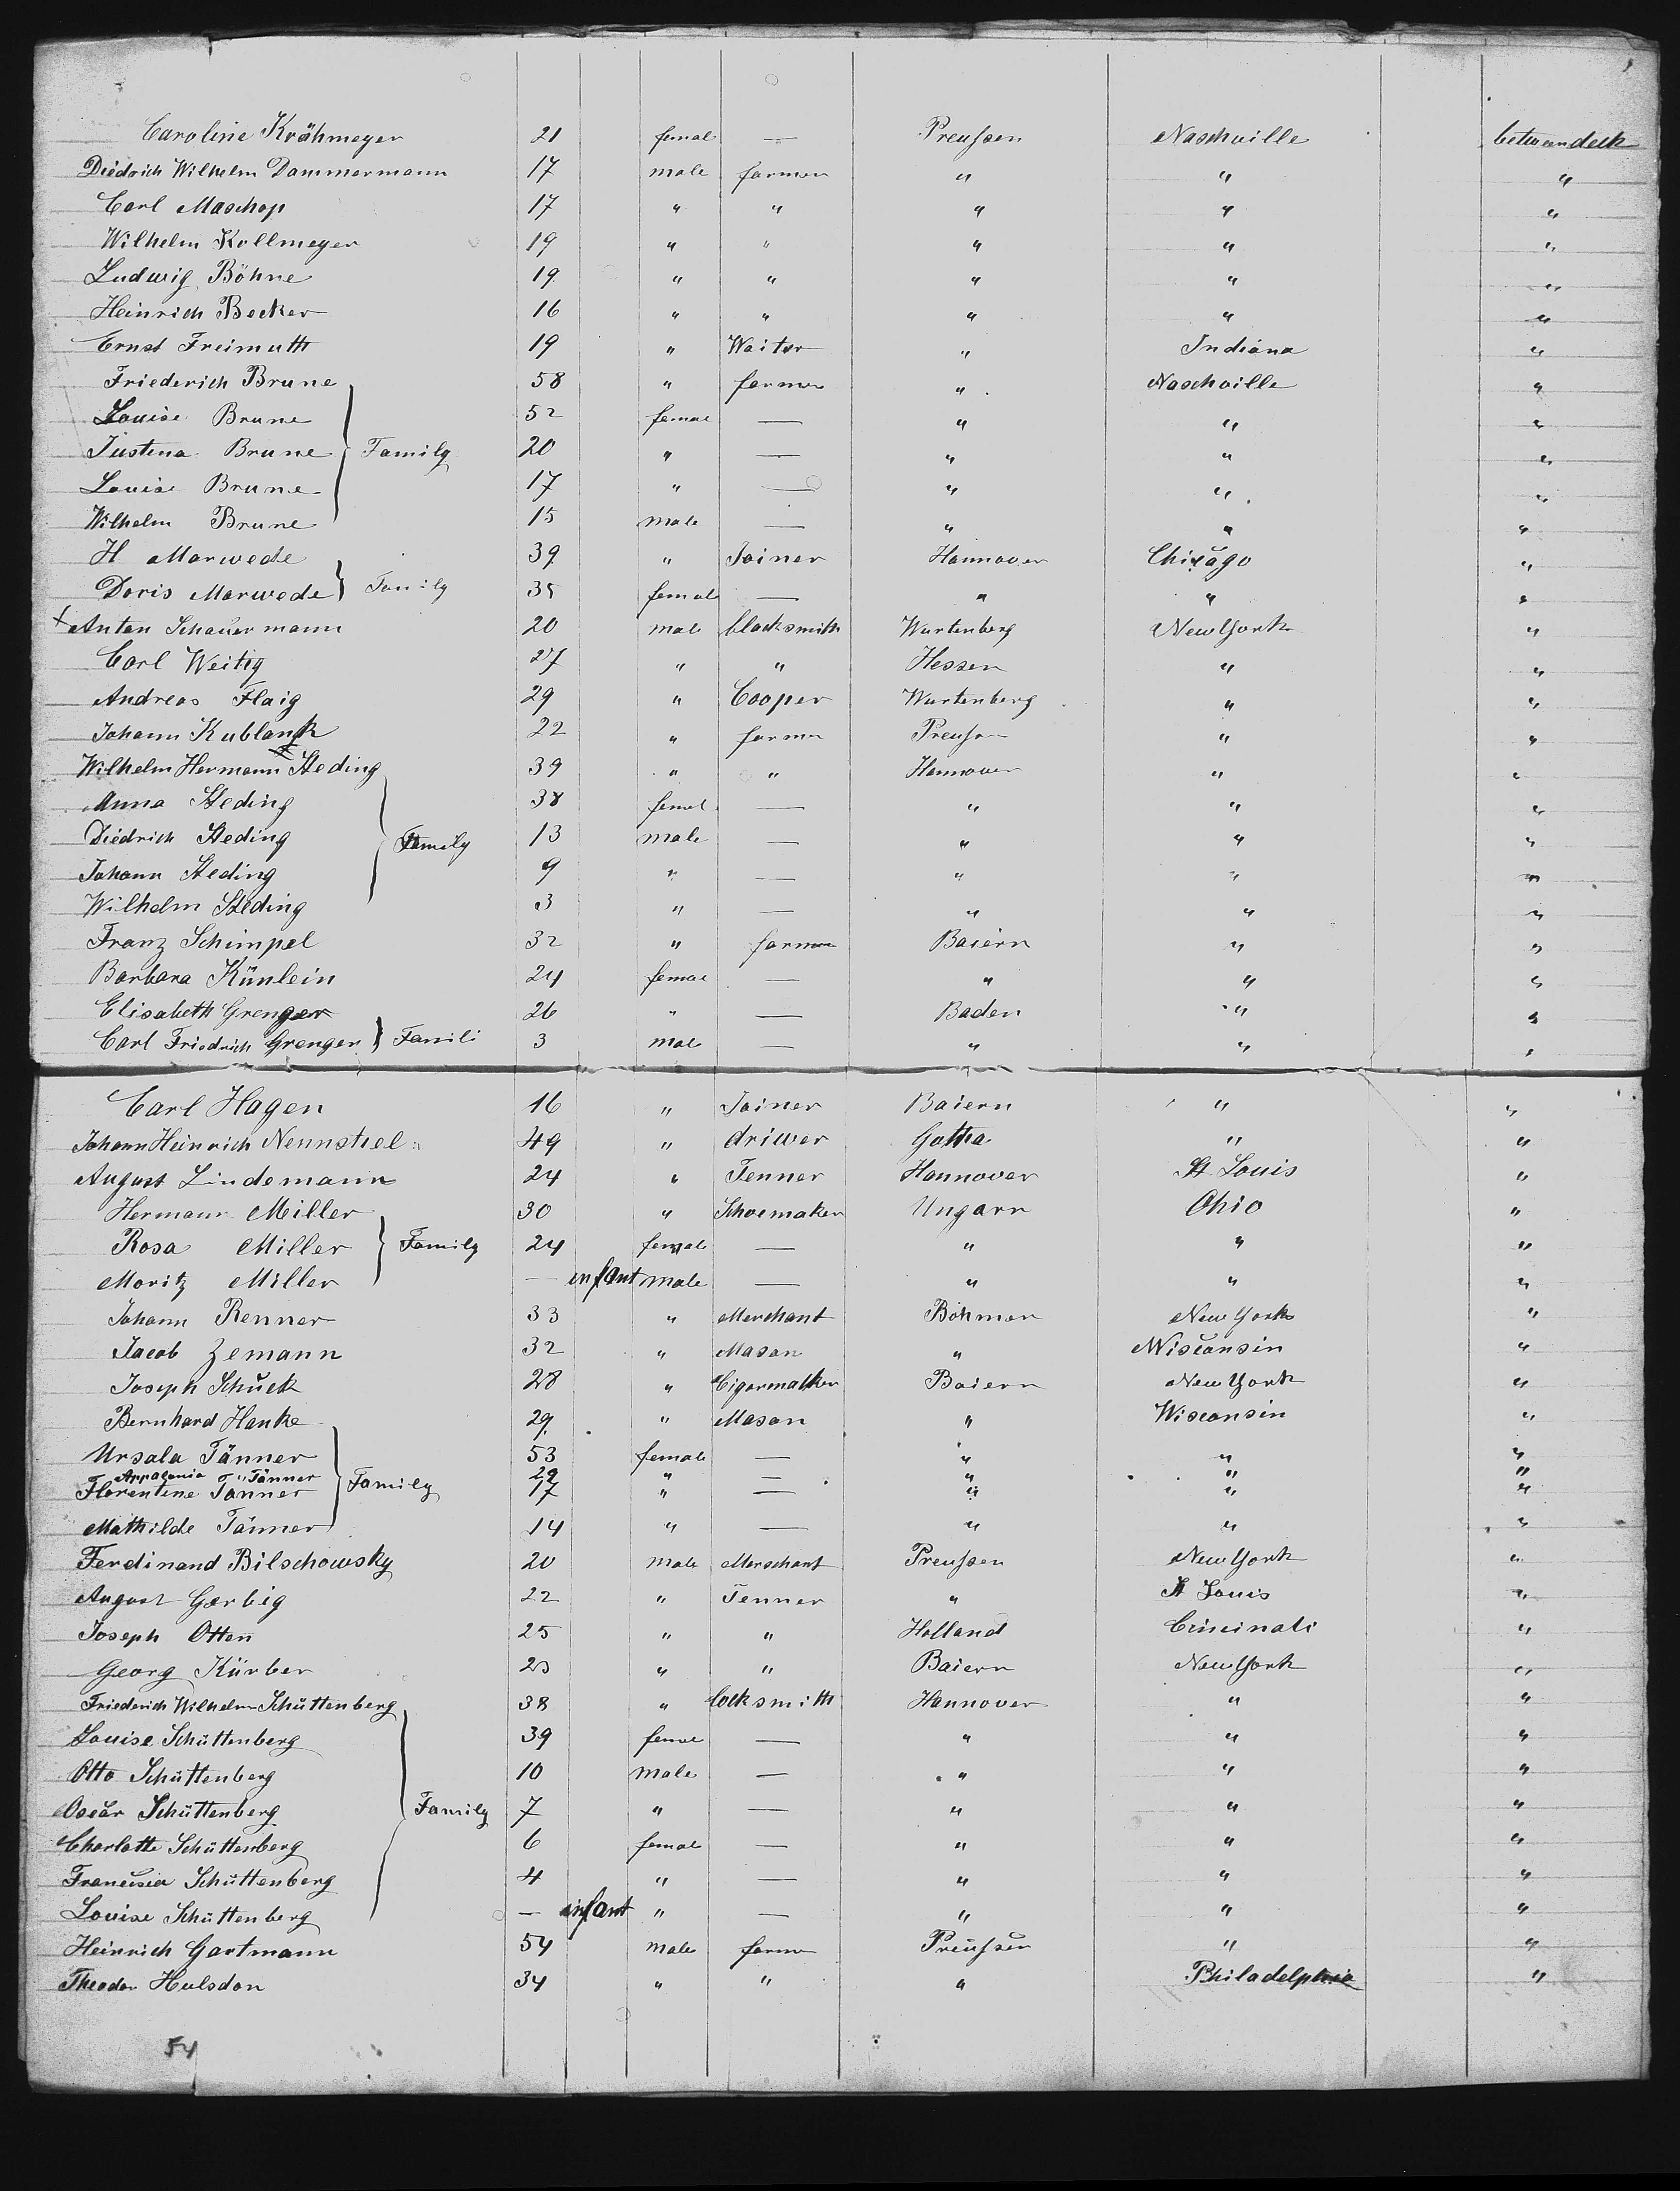 Caroline Krähmeyer 21 femal — Preussen Naschville betweendeck
Diedrich Wilhelm Dammermann 17 male farmer " " "
Carl Maschop 17 " " " " "
Wilhelm Kollmeyer 19 " " " " "
Ludwig Böhne 19 " " " " "
Heinrich Becker 16 " " " " "
Ernst Freimuth 19 " Waiter " Indiana "
Friederich Brune 58 " farmer " Naschville "
Louise Brune 52 femal — " " "
Justena Brune Family 20 " — " " "
Louise Brune 17 " — " " "
Wilhelm Brune 15 male — " " "
H Marwede 39 " Joiner Hannover Chicago "
Doris Marwede Family 35 female — " " "
x Anton Schauermann 20 male blacksmith Wurtenberg New York "
Carl Weitig 27 " " Hessen " "
Andreas Flaig 29 " Cooper Wurtenberg " "
Johann Kublank 22 " farmer Preussen " "
Wilhelm Hermann Steding 39 " " Hannover " "
Anna Steding 38 femal — " " "
Diedrich Steding Family 13 male — " " "
Johann Steding 9 " — " " "
Wilhelm Steding 3 " — " " "
Franz Schimpel 32 " farmer Baiern " "
Barbara Künlein 24 femal — " " "
Elisabeth Grenger 26 " — Baden " "
Carl Friedrich Grenger Famili 3 mal — " " "
Carl Hagen 16 " Joiner Baiern " "
Johann Heinrich Nennstiel 49 " driwer Gotha " "
August Lindemann 24 " Tenner Hannover St Louis "
Hermann Miller 30 " Schoemaker Ungarn Ohio "
Rosa Miller Family 24 female — " " "
Moritz Miller — infant male — " " "
Johann Renner 33 " Merchant Böhmen New York "
Jacob Zemann 32 " Mason " Wisconsin "
Joseph Schuck 28 " Cigarmakker Baiern New York "
Bernhard Hanke 29 " Mason " Wisconsin "
Ursala Tänner 53 female — " " "
Appalonia Tänner 22 " — " " "
Florentine Tänner Family 17 " — " " "
Mathilde Tänner 14 " — " " "
Ferdinand Bilschowsky 20 male Merschant Preussen New York "
August Gerbig 22 " Tenner " St Louis "
Joseph Otten 25 " " Holland Cincinati "
Georg Kürber 23 " " Baiern New York "
Friederich Wilhelm Schüttenberg 38 " locksmith Hannover " "
Louise Schüttenberg 39 femal — " " "
Otto Schüttenberg 10 male — " " "
Oscar Schüttenberg Family 7 " — " " "
Charlotte Schüttenberg 6 female — " " "
Francisca Schüttenberg 4 " — " " "
Louise Schüttenberg — infant " — " " "
Heinrich Gartmann 54 male farmer Preussen " "
Theodor Hulsdon 34 " " " Philadelphia "
54